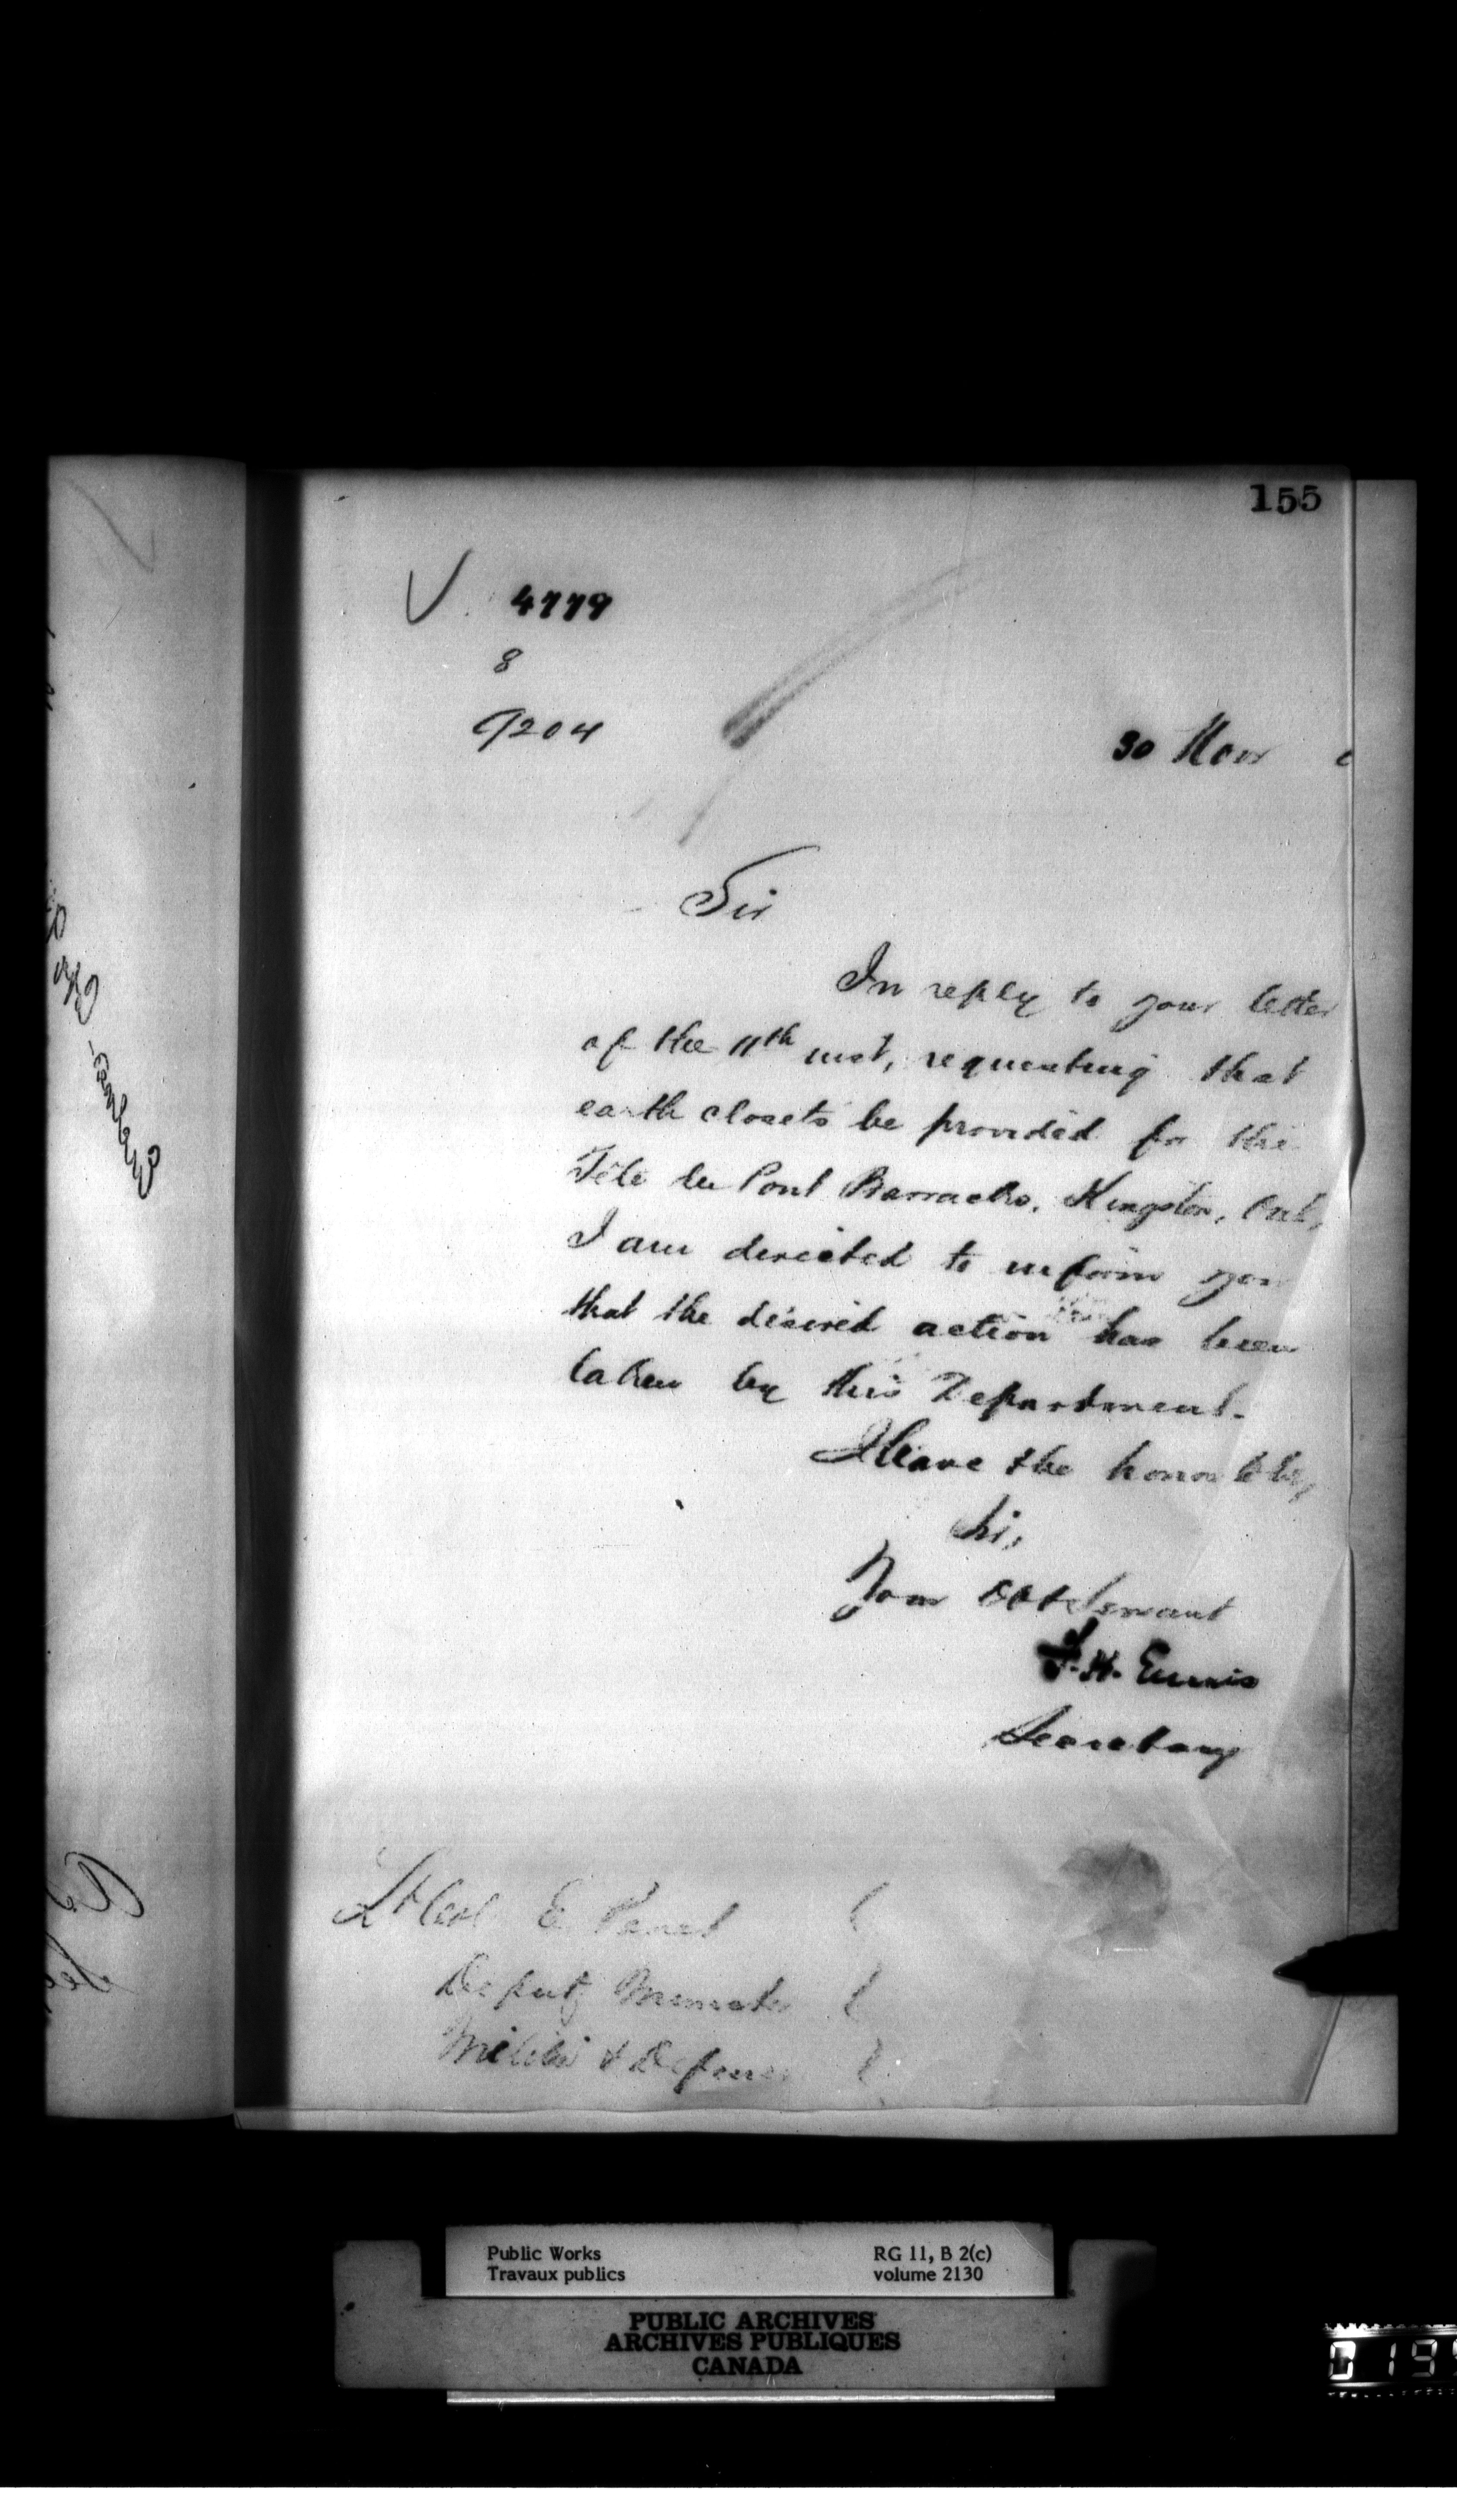 155
4779
8
9204
30 Nov
Sir
In reply to your letter
of the 11th inst, requesting that
earth closets be provided for the
Tête du Pont Barracks, Kingston, Ont,
I am directed to inform you
that the desired action has been
taken by this Department.
I have the honor to be,
Sir,
Your Obt Servant
F. H. Ennis
Secretary
Lt Col E Panet
Deputy Minister
Militia & Defence
Public Works
Travaux publics
RG 11, B 2(c)
volume 2130
PUBLIC ARCHIVES
ARCHIVES PUBLIQUES
CANADA